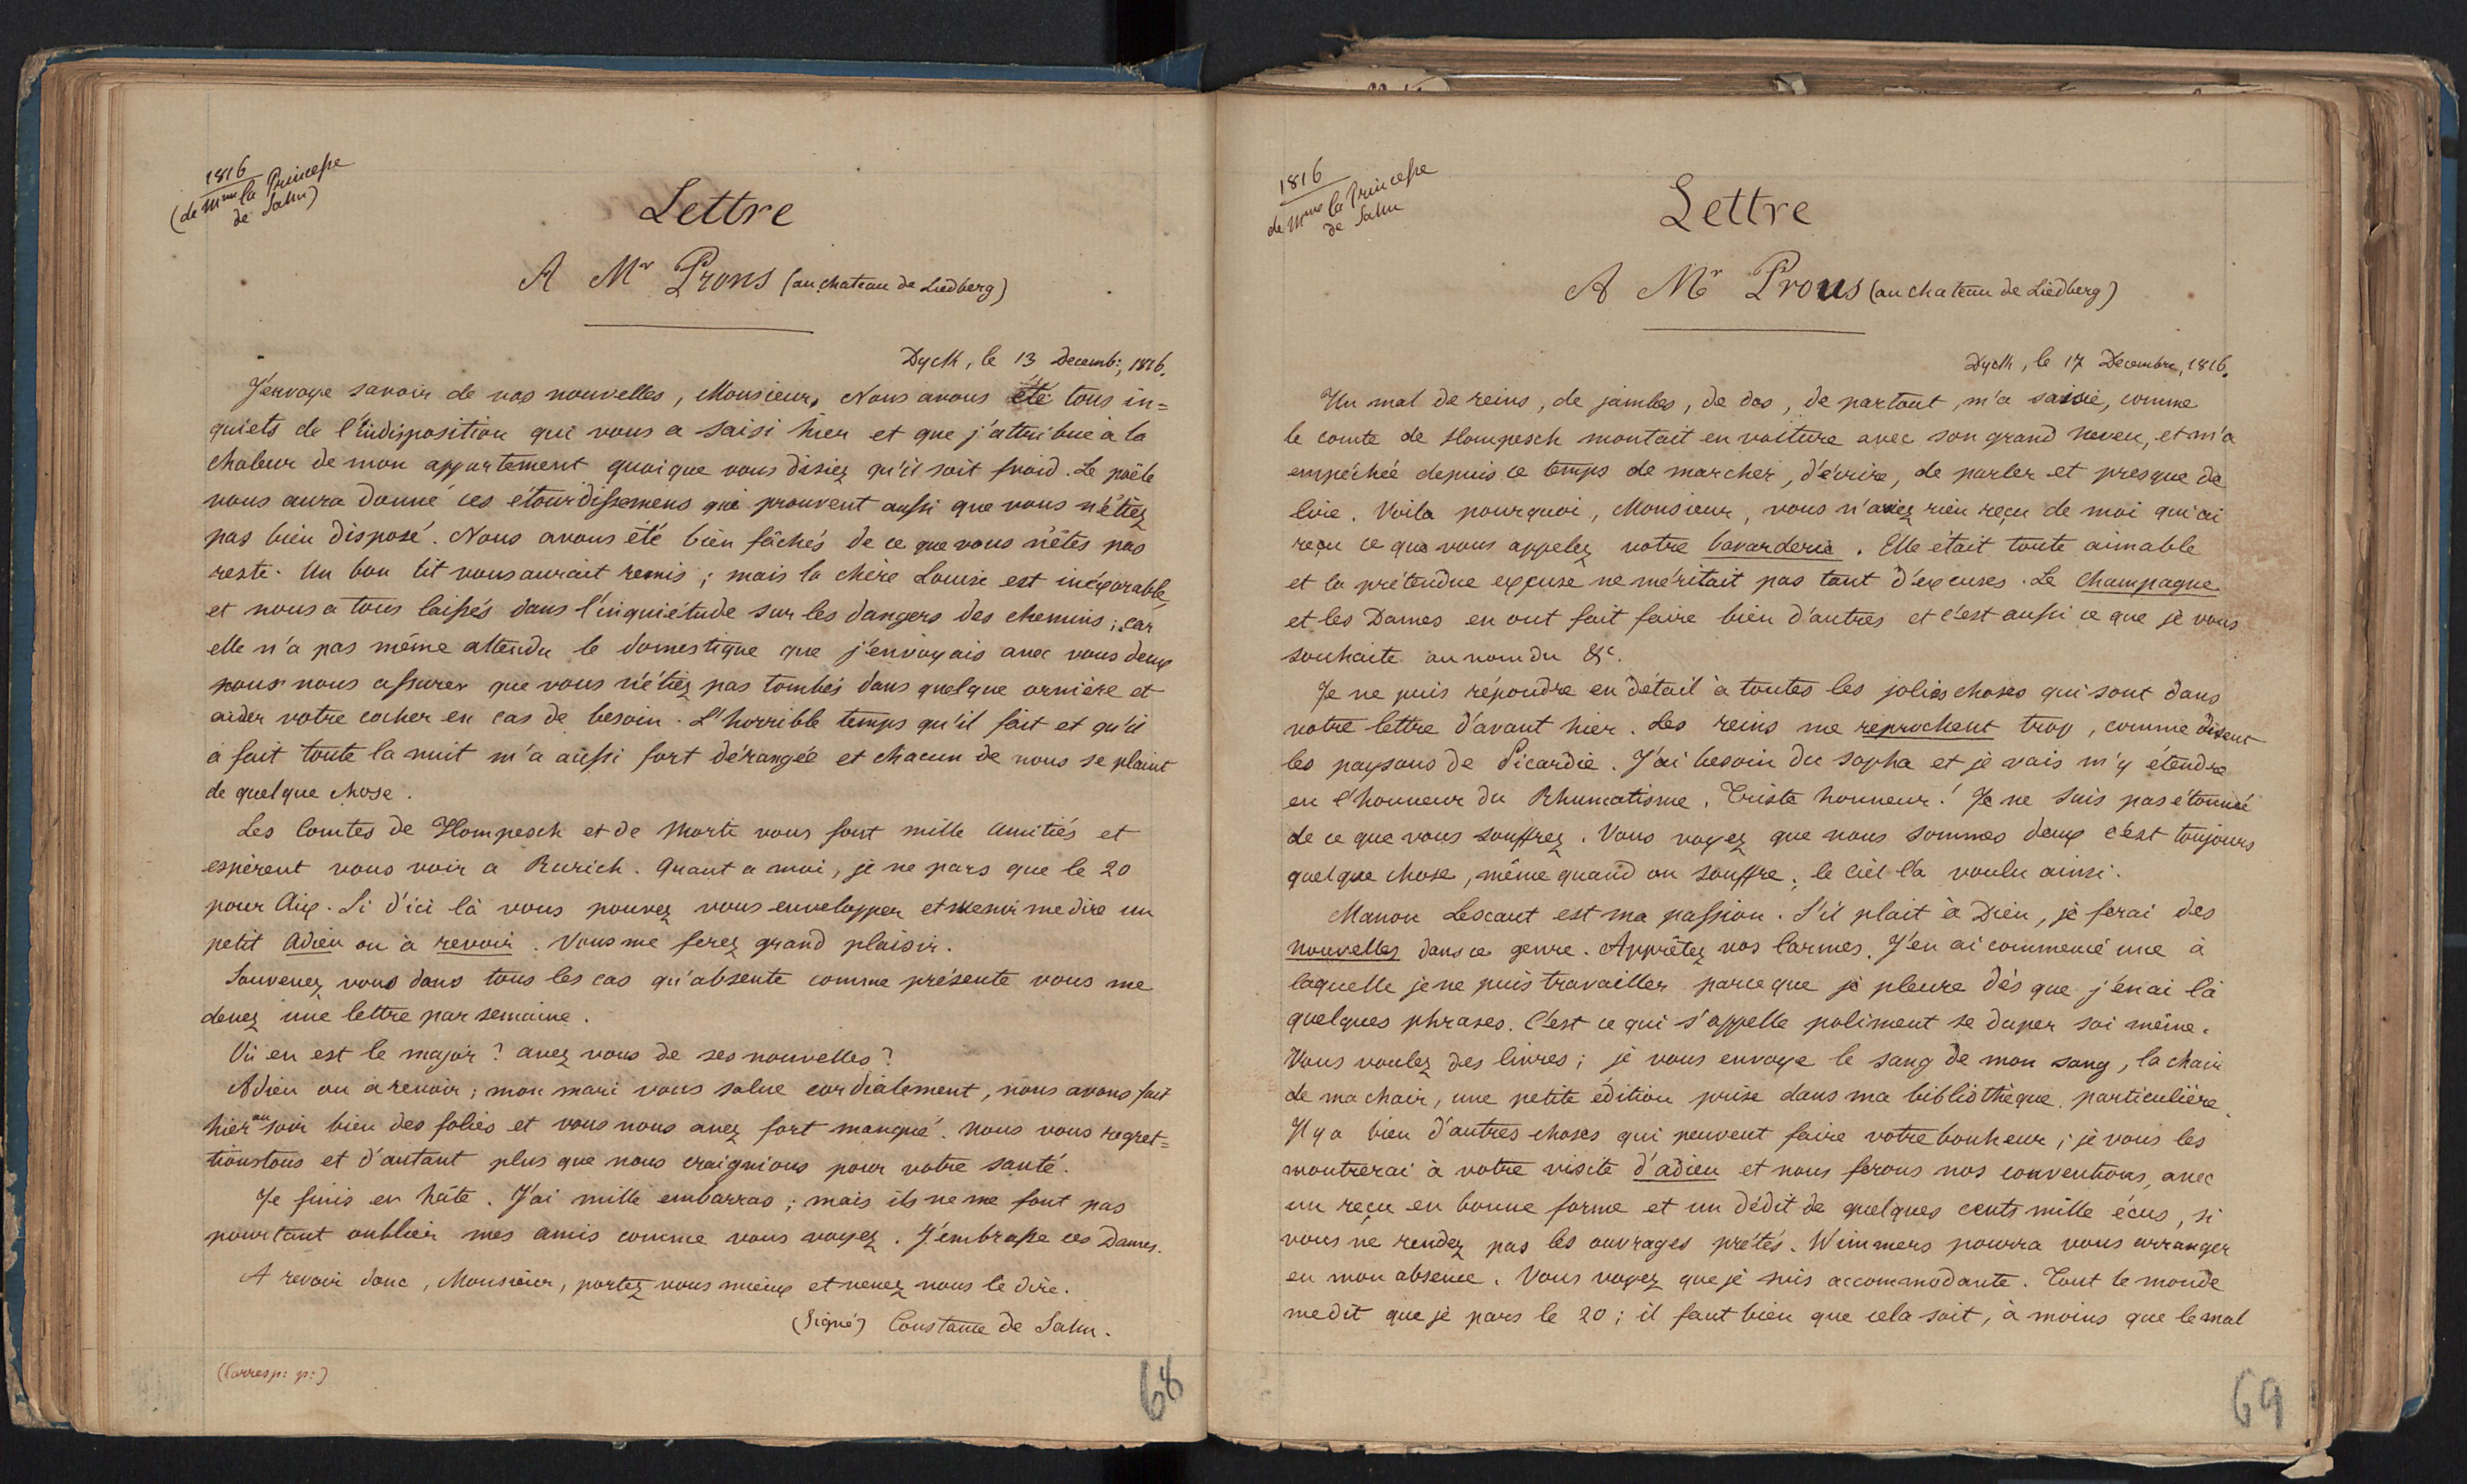 1816
(de Mme la Princesse
de Salm)
Lettre
A Mr Prons (au chateau de Liedberg)
Dyck, le 13 decemb:, 1816.
J'envoye savoir de vos nouvelles, Monsieur, Nous avons été tous in=
quiets de l'indisposition qui vous a saisi hier et que j'attribue à la
chaleur de mon appartement quoique vous disiez qu'il soit froid. Le poële
vous aura donné ces étourdissemens qui prouvent aussi que vous n'étiez
pas bien disposé. Nous avons été bien fâchés de ce que vous n'êtes pas
resté. Un bon lit vous aurait remis; mais la chère Louise est inéxorable,
et nous a tous laissés dans l'inquiétude sur les dangers des chemins; car
elle n'a pas même attendu le domestique que j'envoyais avec vous deux
pour nous assurer que vous n'étiez pas tombés dans quelque ornière et
aider votre cocher en cas de besoin. L'horrible temps qu'il fait et qu'il
a fait toute la nuit m'a aussi fort dérangée et chacun de nous se plaint
de quelque chose.
Les Comtes de Hompesch et de Merti vous font mille amitiés et
espèrent vous voir a Rurich. Quant a moi, je ne pars que le 20
pour Aix. Si d'ici là vous pouvez vous envelopper et venir me dire un
petit adieu ou à revoir. Vous me ferez grand plaisir.
Souvenez vous dans tous les cas qu'absente comme présente vous me
devez une lettre par semaine.
Où en est le major? avez vous de ses nouvelles?
Adieu ou à revoir; mon mari vous salue cordialement, nous avons fait
hier au soir bien des folies et vous nous avez fort manqué. Nous vous regret=
tions tous et d'autant plus que nous craignions pour votre santé.
Je finis en hâte. J'ai mille embarras; mais ils ne me font pas
pourtant oublier mes amis comme vous voyez. J'embrasse ces Dames.
A revoir donc, Monsieur, portez vous mieux et venez nous le dire.
(Signé) Constance de Salm.
(Corresp: p:)
68
1816
de Mme la Princesse
de Salm
Lettre
A Mr Prous (au chateau de Liedberg)
Dyck, le 17 Decembre, 1816.
Un mal de reins, de jambes, de dos, de partout, m'a saisie, comme
le comte de Hompesch montait en voiture avec son grand neveu, et m'a
empéchée depuis ce temps de marcher, d'écrire, de parler et presque de
lire. Voila pourquoi, Monsieur, vous n'aviez rien reçu de moi qui ai
reçu ce que vous appelez votre bavarderie. Elle était toute aimable
et la prétendue excuse ne méritait pas tant d'excuses. Le Champagne
et les Dames en ont fait faire bien d'autres et c'est aussi ce que je vous
souhaite au nom du &c.
Je ne puis répondre en détail à toutes les jolies choses qui sont dans
votre lettre d'avant hier. Les reins me reprochent trop, comme disent
les paysans de Picardie. J'ai besoin du sopha et je vais m'y étendre
en l'honneur du Rhumatisme. Triste honneur! Je ne suis pas étonnée
de ce que vous souffrez. Vous voyez que nous sommes deux c'est toujours
quelque chose, même quand on souffre; le ciel l'a voulu ainsi.
Manon Lescaut est ma passion. S'il plait à Dieu, je ferai des
nouvelles dans ce genre. Apprêtez vos larmes. J'en ai commencé une à
laquelle je ne puis travailler parce que je pleure dès que j'en ai lû
quelques phrases. C'est ce qui s'appelle poliment se duper soi même.
Vous voulez des livres; je vous envoye le sang de mon sang, la chair
de ma chair, une petite édition prise dans ma bibliothèque particulière.
Il y a bien d'autres choses qui peuvent faire votre bonheur; je vous les
montrerai à votre visite d'adieu et nous ferons nos conventions, avec
un reçu en bonne forme et un dédit de quelques cents mille écus, si
vous ne rendez pas les ouvrages prêtés. Wimmers pourra vous arranger
en mon absence. Vous voyez que je suis accommodante. Tout le monde
me dit que je pars le 20; il faut bien que cela soit, à moins que le mal
69